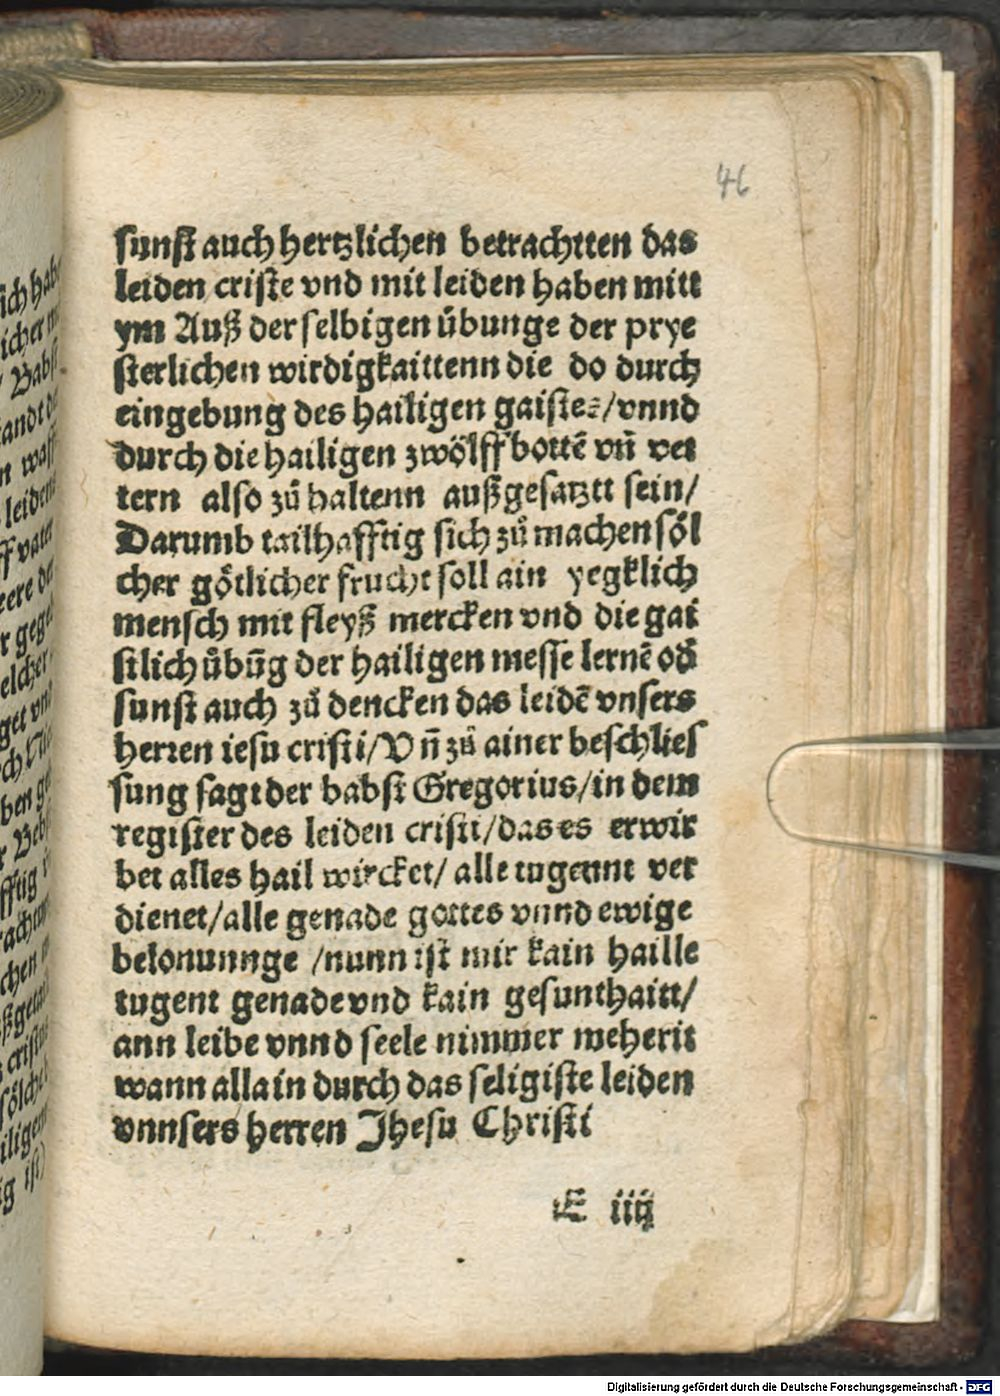 46
sunst auch hertzlichen betrachtten das
leiden criste vnd mit leiden haben mitt
ym Auß der selbigen übunge der prye
sterlichen wirdigkaittenn die do durch
eingebung des hailigen gaistes/vnnd
durch die hailigen zwölff bottē vn̄ vet
tern also zů haltenn außgesatztt sein/
Darumb tailhafftig sich zů machen söl
cher götlicher frucht soll ain yegklich
mensch mit fleyß mercken vnd die gai
stlich übūg der hailigen messe lernē od̄
sunst auch zů dencken das leidē vnsers
herren iesu cristi/Vn̄ zů ainer beschlies
sung sagt der babst Gregorius/in dem
register des leiden cristi/das es erwir
bet alles hail wircket/ alle tugennt ver
dienet/alle genade gottes vnnd ewige
belonunnge /nunn ist mir kain haille
tugent genade vnd kain gesunthaitt/
ann leibe vnnd seele nimmer meherit
wann allain durch das seligiste leiden
vnnsers herren Jhesu Christi
E iiij
Digitalisierung gefördert durch die Deutsche Forschungsgemeinschaft - DFG